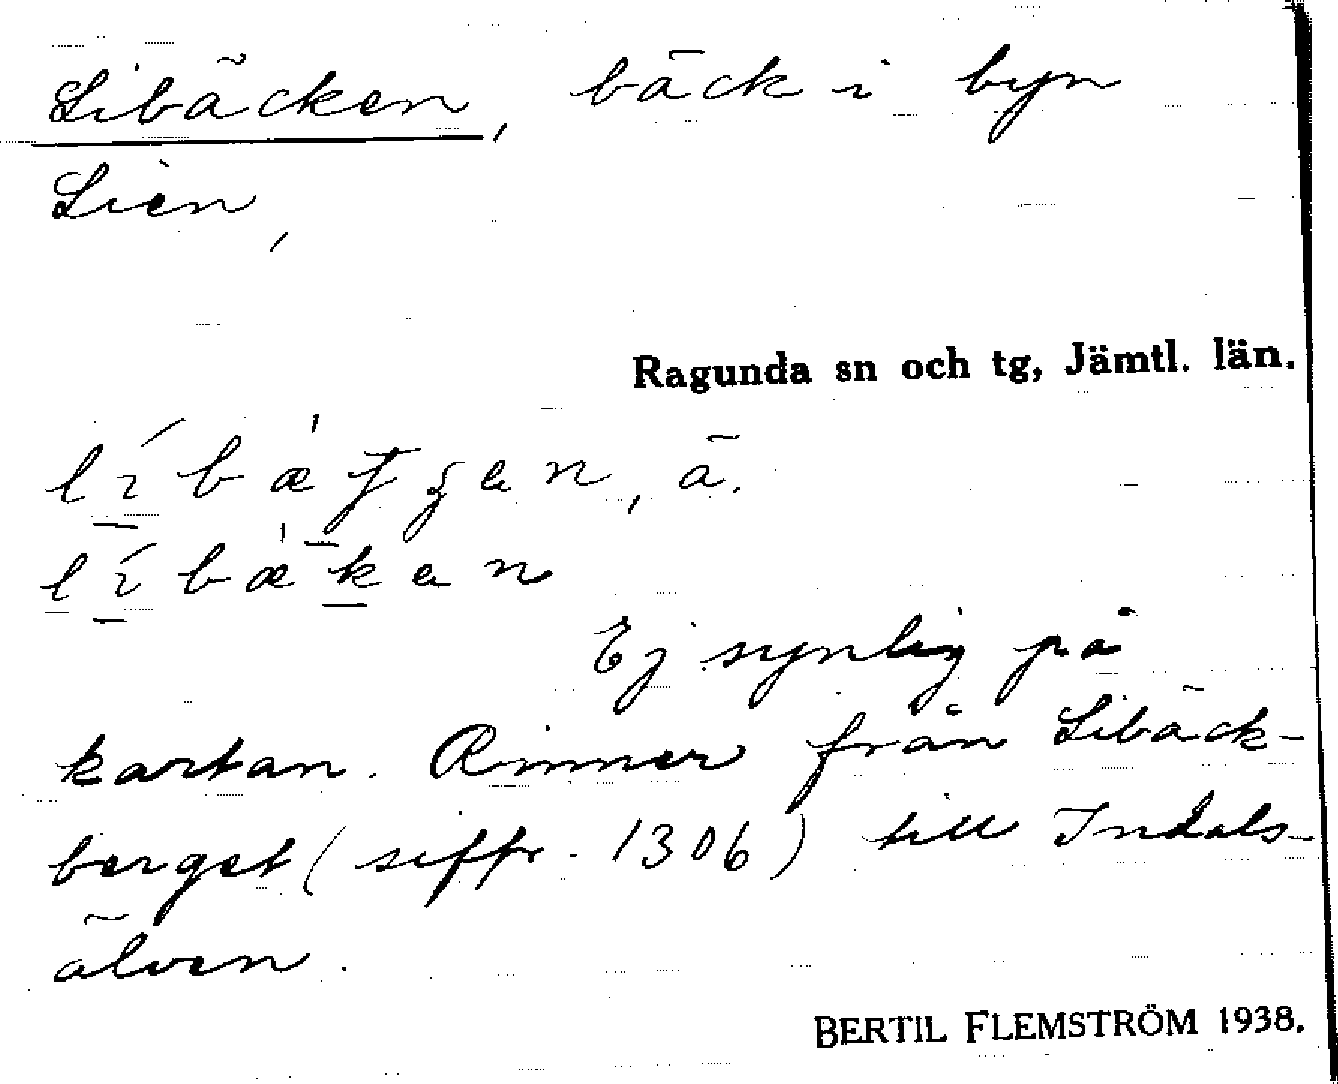 Libäcken, bäck i byn
Lien,
Ragunda sn och tg, Jämtl. län.
ä.
Ej synlig på
kartan. Rinner från Libäck-
berget (siffr. 1306) till Indals-
älven.
BERTIL FLEMSTRÖM 1938.